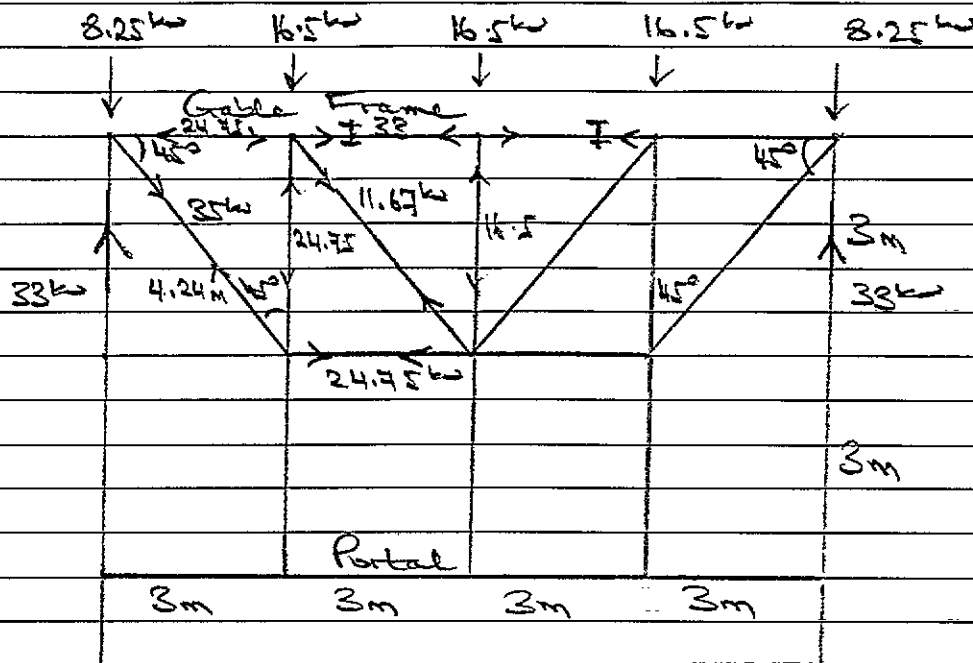 8.25kw 16.5kw 16.5kw 16.5kw 8.25kw
Gable Frame
24.75 I 32 I
45° 45°
35kw 11.67kw
24.75 16.5 3m
33kw 4.24m 45° 45° 33kw
24.75kw
3m
Portal
3m 3m 3m 3m